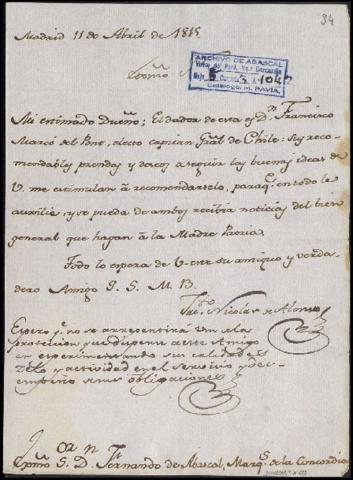 34
Madrid 11 de Abril de 1815
ARCHIVO DE ABASCAL
Mi estimado Dueño; El dador de esta es Dn. Francisco
Marcó del Pont, electo capitan Gral de Chile: Sus reco-
mendables prendas y deseos a seguir las buenas ideas de
V. me estimulan á recomendarselo, para q.e en todo le
auxilie, y se pueda de ambos recibir noticias del bien
general que hagan á la Madre Patria.
Todo lo espera de V. este su antiguo y verda-
dero Amigo Q. S. M. B.
Nicolas
Espero q.e no se arrepentirá Vm de la
proteccion que dispense a este Amigo
en experimentando sus calidades
zelo, y actividad en el servicio y des-
empeño de sus obligaciones
S. D. Fernando de Abascal, Marq.s de la Concordia